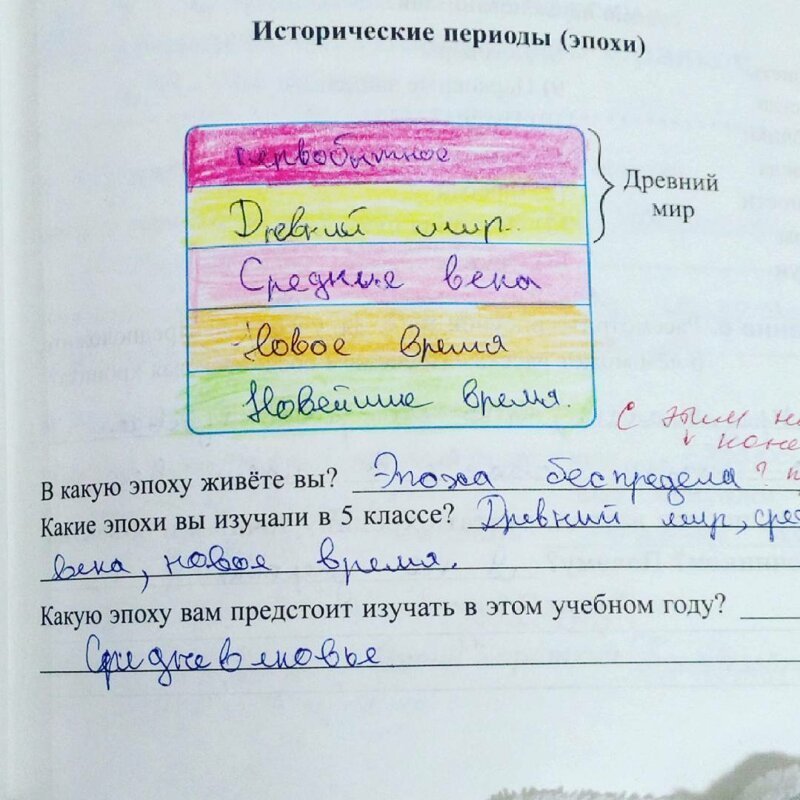 Исторические периоды (эпохи)
Первобытное
Древний мир.
Древний
мир
Средние века
Новое время
Новейшие время.
С этим не
коне
В какую эпоху живёте вы? Эпоха беспредела ?
Какие эпохи вы изучали в 5 классе? Древний мир, сре
века, новое время.
Какую эпоху вам предстоит изучать в этом учебном году?
Средневековье